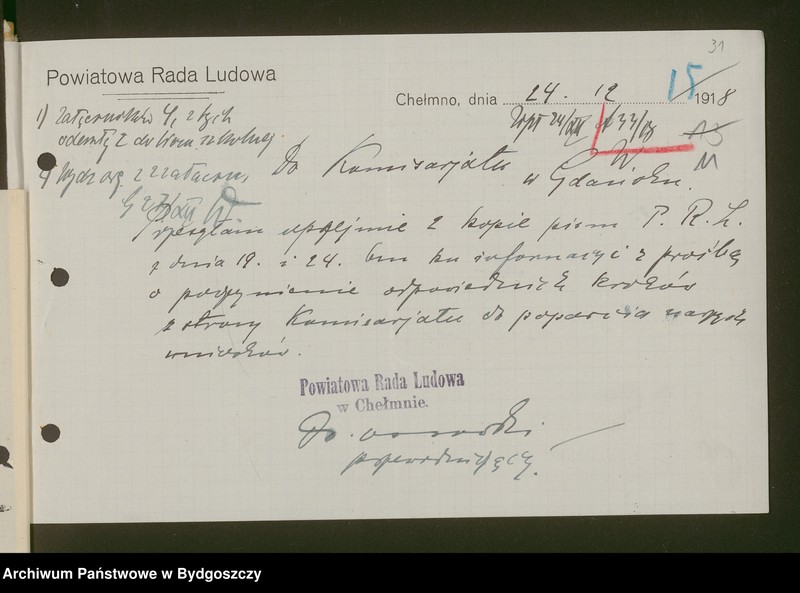 31
Powiatowa Rada Ludowa
Chełmno, dnia 24. 12 1918
15
1) załączników 4, z tych
2 do
Do Komisarjatu
w Gdańsku.
Przesyłam uprzejmie 2 kopie pism P. R. L.
z dnia 19. i 24. bm ku informacyi z prośbą
o poczynienie odpowiednich kroków
z strony Komisarjatu do poparcia naszych
wniosków.
Powiatowa Rada Ludowa
w Chełmnie.
przewodniczący.
Archiwum Państwowe w Bydgoszczy